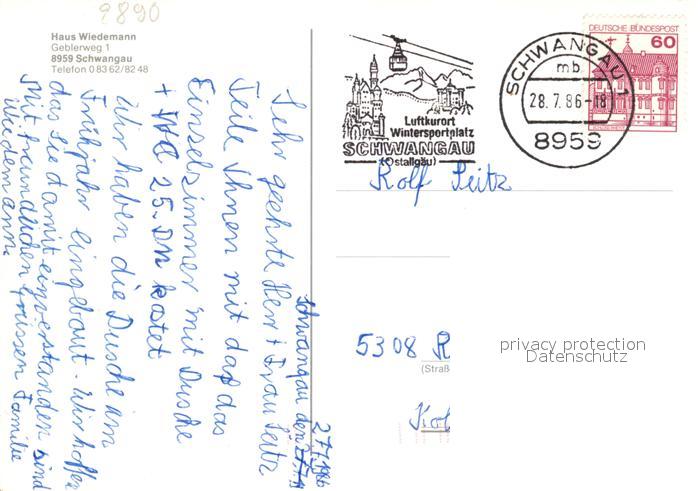 9890
Haus Wiedemann
Geblerweg 1
8959 Schwangau
Telefon 0 83 62/82 48
Luftkurort
Wintersportplatz
SCHWANGAU
(Ostallgäu)
SCHWANGAU 1
mb
28.7.86-18
8959
DEUTSCHE BUNDESPOST
60
Schwangau den 27.7.
27.7.1986
Sehr geehrte Herr + Frau Seitz
Teile Ihnen mit daß das
Einzelzimmer mit Dusche
+ WC 25.- DM kostet
Wir haben die Dusche im
Frühjahr eingebaut. Wir hoffen
das Sie damit einverstanden sind
Mit freundlichen Grüssen Familie
Wiedemann.
Rolf Seitz
5308 R
(Straß
privacy protection
Datenschutz